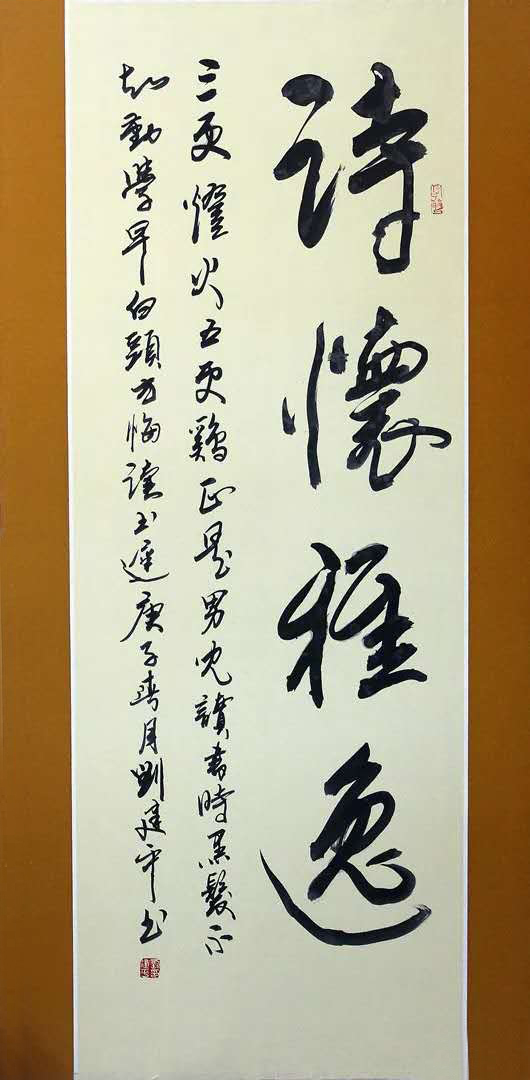 詩懷雅逸
三更燈火五更鷄正是男兒讀書時黑髮不
知勤學早白頭方悔讀书遲庚子春月劉建平书